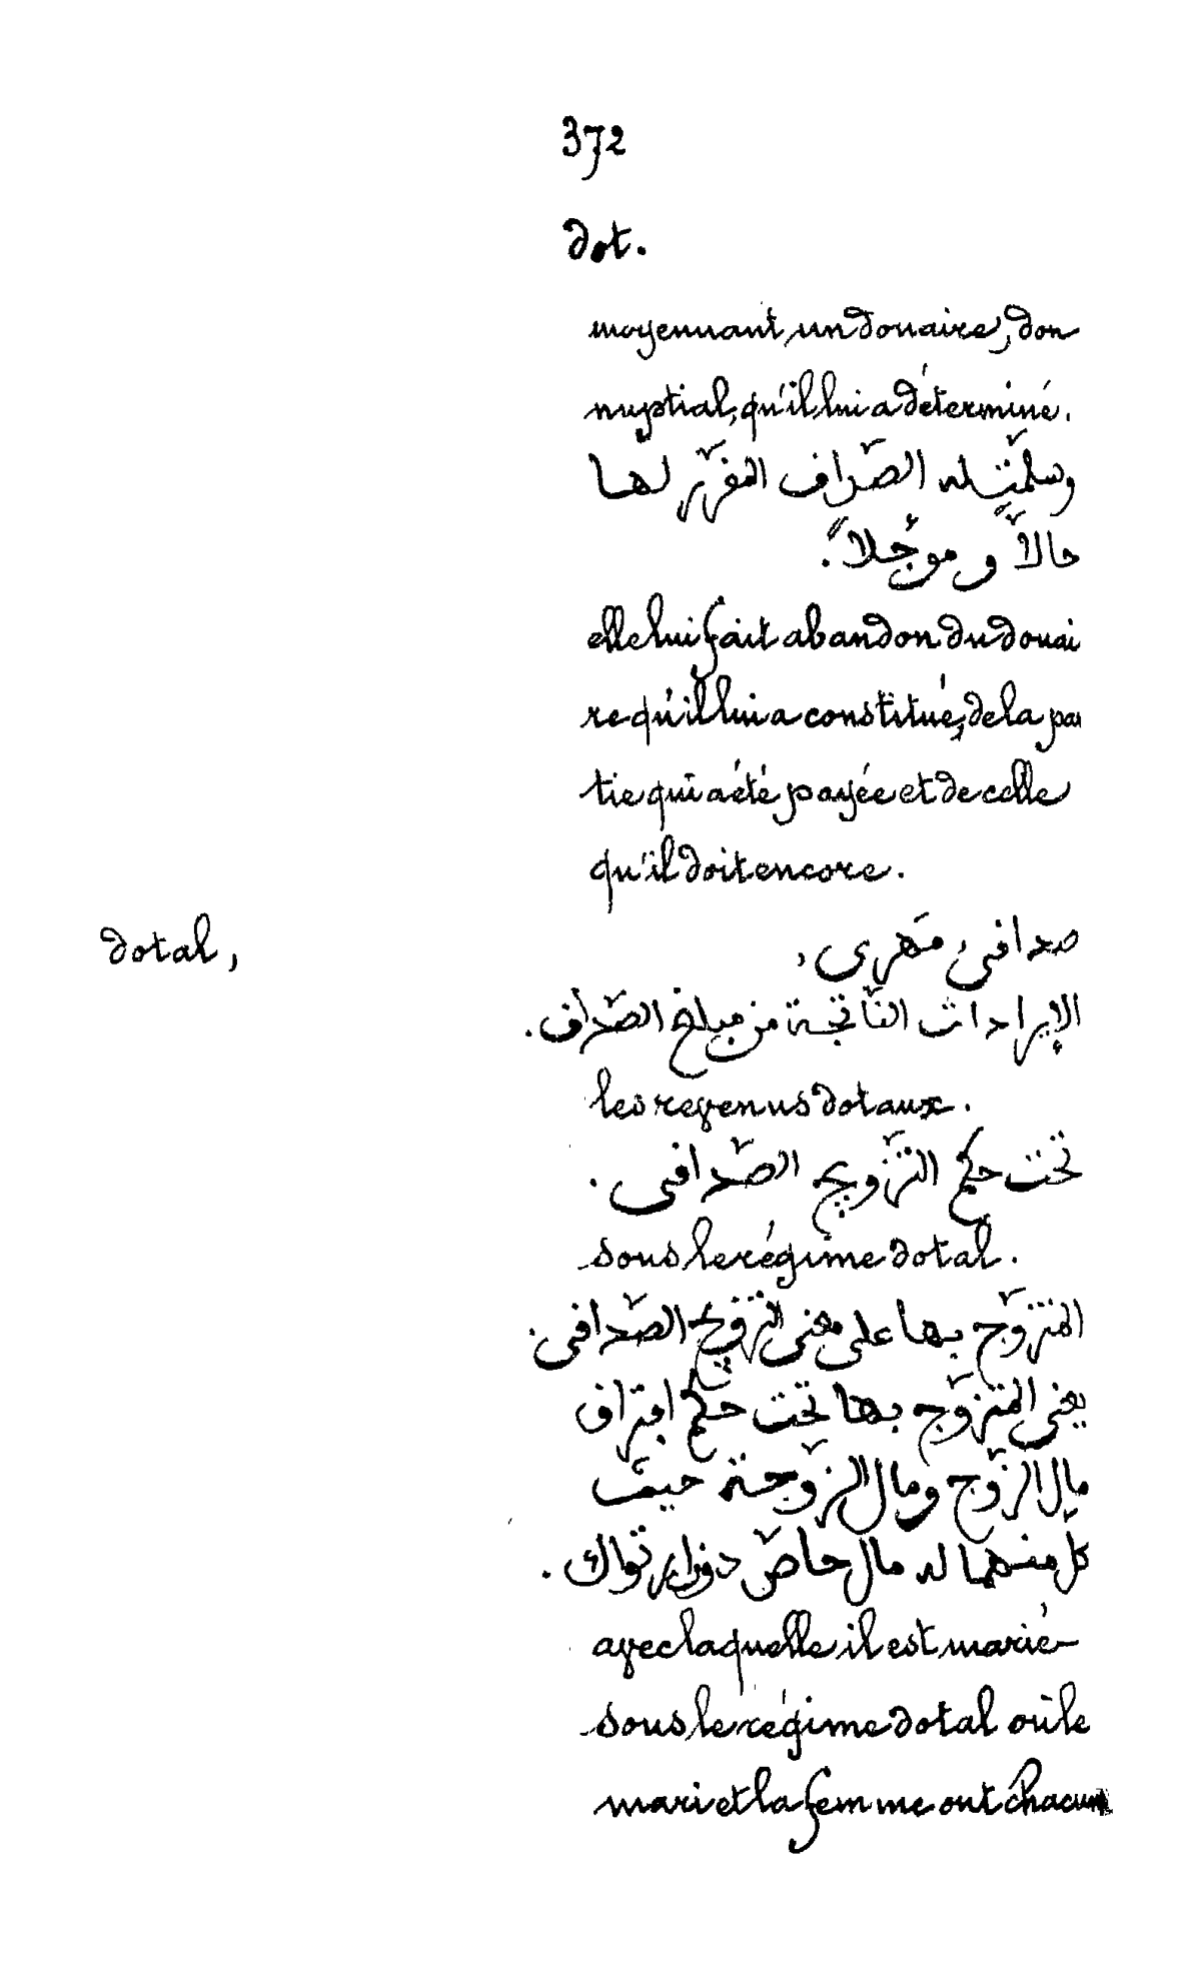 372
dot.
moyennant un douaire, don
nuptial, qu'il lui a déterminé.
وسلّمت له الصّداق المقرّر لها
حالاً ومؤجّلاً.
elle lui fait abandon du douai
re qu'il lui a constitué, de la par
tie qui a été payée et de celle
qu'il doit encore.
dotal,
صداقى, مَهرى,
الإيرادات النّاتجة من مبلغ الصّداق.
les revenus dotaux.
تحت حكم التزّويج الصّداقى.
sous le régime dotal.
المتزوّج بها على مقتضى التزويج الصّداقى.
يعنى المتزوّج بها تحت حكم افتراق
مال الزّوج ومال الزّوجة حيث
كلّ منهما له مال خاصّ دون اشتراك.
avec laquelle il est marié
sous le régime dotal où le
mari et la femme ont chacun